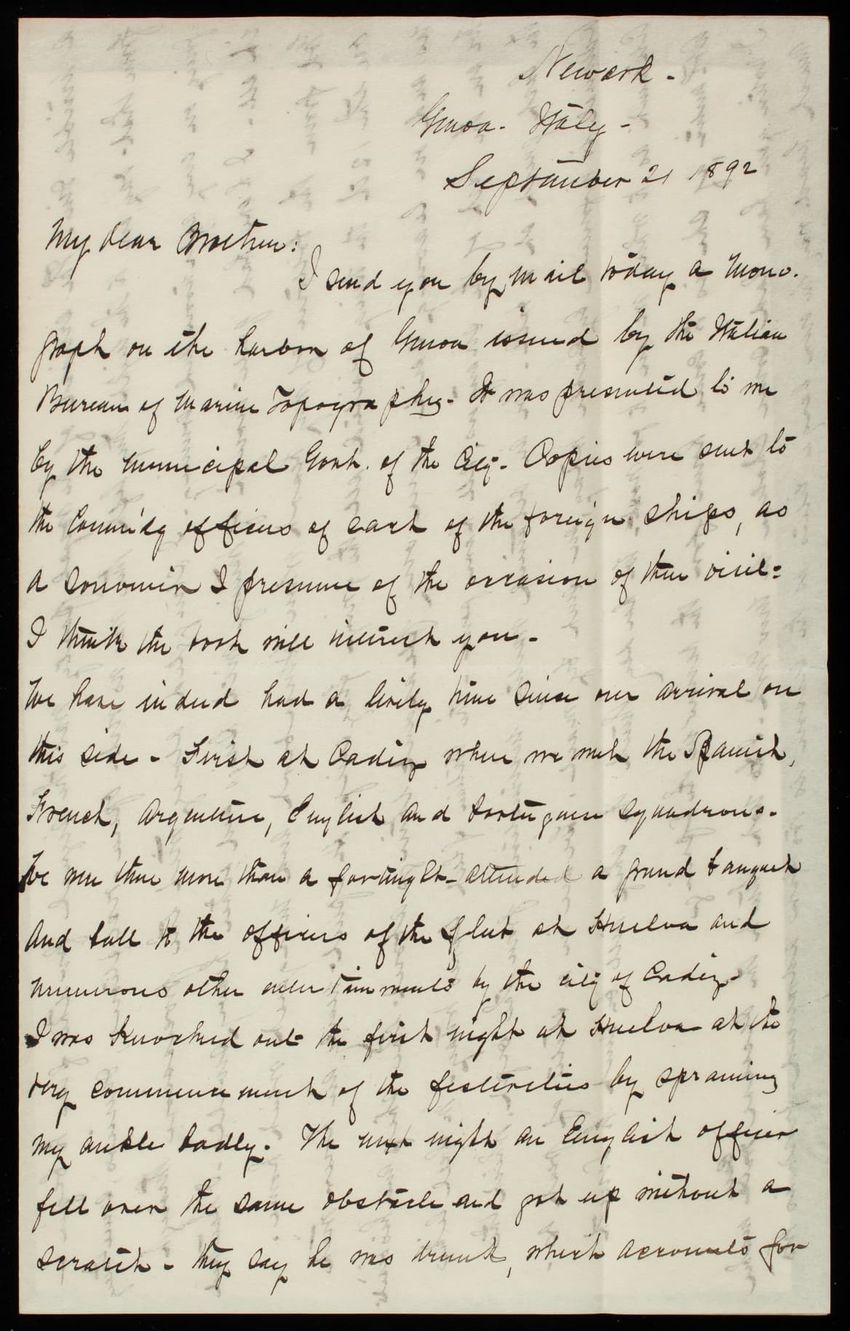 Newark -
Genoa - Italy -
September 21 1892
My dear Brother:
I send you by mail today a mono-
graph on the harbor of Genoa issued by the Italian
Bureau of Marine Topography - It was presented to me
by the Municipal Govt. of the City - Copies were sent to
the Commdg officers of each of the foreign ships, as
a souvenir I presume of the occasion of their visit -
I think the book will interest you -
We have indeed had a lively time since our arrival on
this side - First at Cadiz where we met the Spanish,
French, Argentine, English and Portuguese squadrons -
We were there more than a fortnight - attended a grand banquet
and ball to the officers of the fleet at Huelva and
numerous other entertainments by the city of Cadiz -
I was knocked out the first night at Huelva at the
very commencement of the festivities by spraining
my ankle badly. The next night an English officer
fell over the same obstacle and got up without a
scratch - they say he was drunk, which accounts for